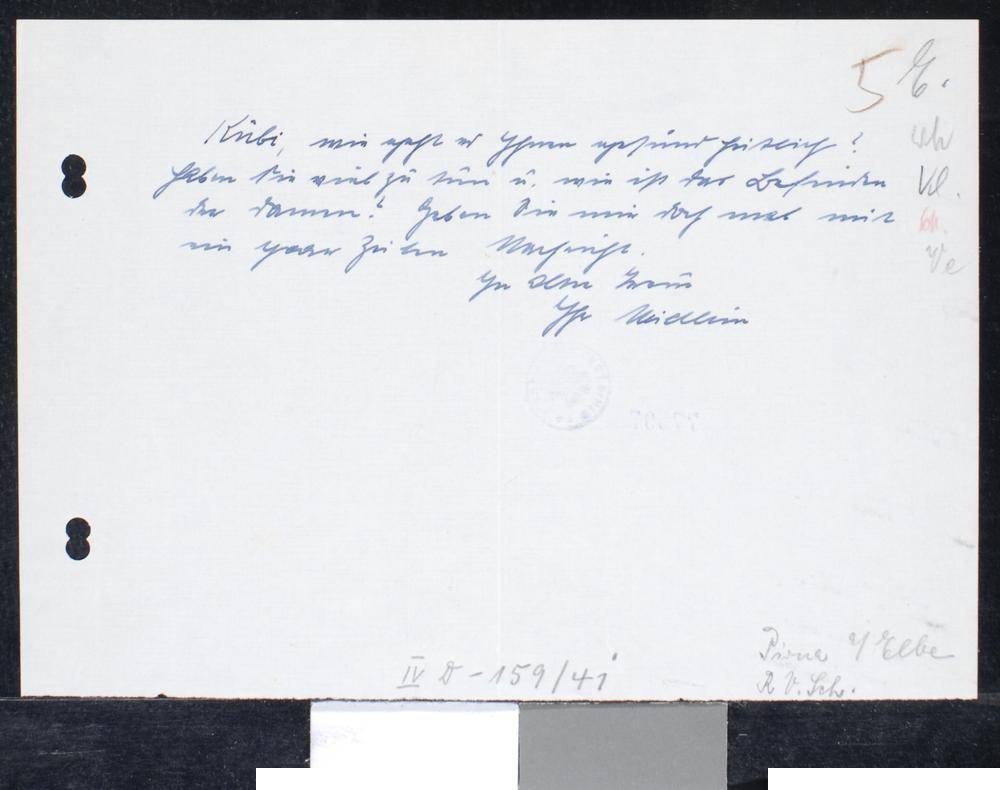 5 E.
Kubi, wie geht es Ihnen gesundheitlich?
Haben Sie viel zu tun u. wie ist das Befinden
der Damen? Geben Sie mir doch mal mit
ein paar Zeilen Nachricht.
In alter Treue
Ihr
Vl.
IV D - 159/41
Pirna / Elbe
R. V. Sch.